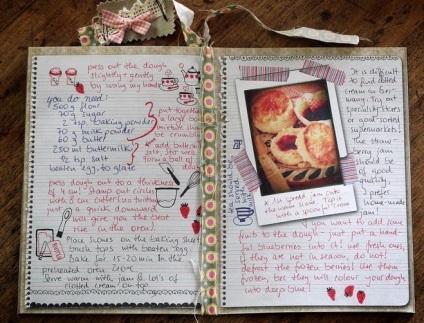 press out the dough
slightly + gently
by using your hands
you do need:
500 g flour
70 g sugar
2 tsp. baking powder
70 g milk powder
60 g butter
250 ml buttermilk
1/2 tsp salt
beaten egg, to glaze
put together
a large bowl
mixture should
be crumbly
add buttermilk
salt, stir well
form a ball of
press dough out to a thickness
of 4 cm! Stamp out circles
with 5 cm cutters, no twisting
just a quick downward
will give you the best
rise in the oven!
Place scones on the baking sheet
brush tops with beaten egg.
Bake for 15-20 min. in the
preheated oven 220°C
Serve warm with jam & lots of
clotted cream on top
It is difficult
to find clotted
cream in Ger-
many. Try out
specialist stores
or good-sorted
supermarkets!
The straw-
berry jam
should be
of good
quality,
I prefer
home-made
jam!
* 1st spread jam onto
the warm scone. Top it
with a spoonful cream
you want to add some
fruits to the dough - just put a hand-
ful blueberries into it! Use fresh ones,
if they are not in season, do not!
defrost the frozen berries! Use them
frozen, bec. they will colour your dough
into deep blue!